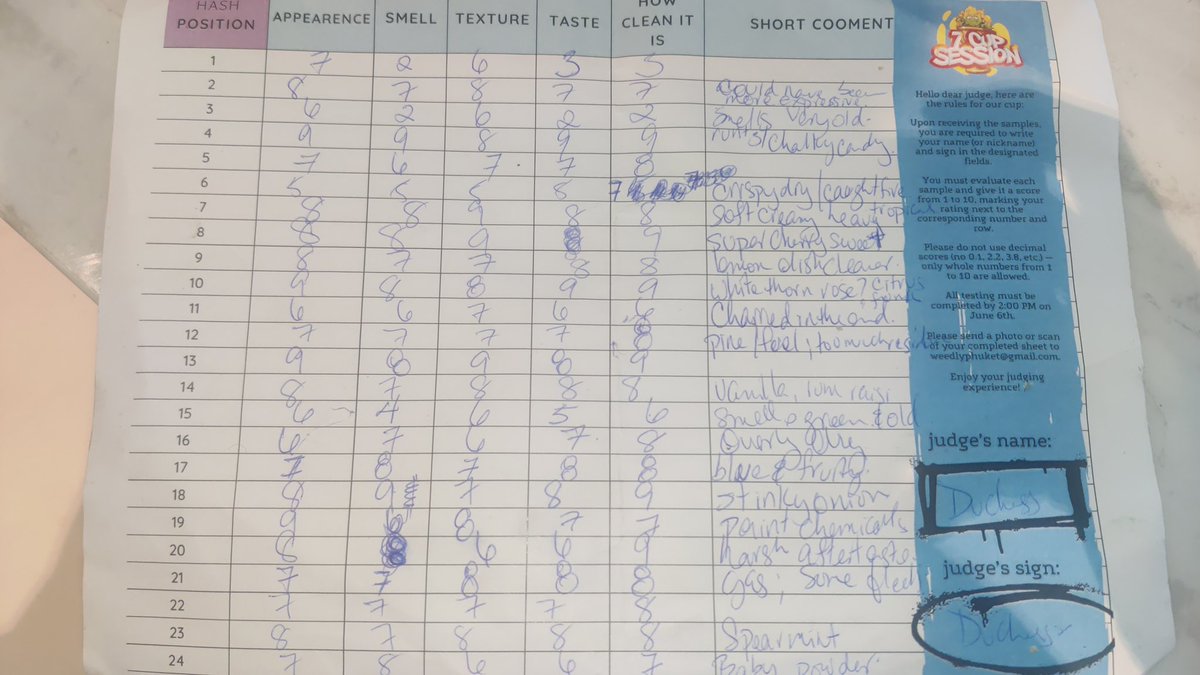 HASH POSITION APPEARENCE SMELL TEXTURE TASTE HOW CLEAN IT IS SHORT COOMENT
1 7 2 6 3 5
2 8 7 8 7 7 could have been more expressive.
3 6 2 6 2 2 Smells very old.
4 9 9 8 9 9 runts/chalky candy.
5 7 6 7 7 8
6 5 5 5 8 7 crispy dry/caught fire
7 8 8 9 8 8 soft cream heavy tropical
8 8 8 9 8 9 super cherry sweet
9 8 7 7 8 8 lemon dish cleaner.
10 9 8 8 9 9 white thorn rose? citrus
11 6 6 7 6 6 Charred in the end.
12 7 7 7 7 8 pine/fuel; too much
13 9 8 9 8 9
14 8 7 8 8 8 Vanilla, rum
15 6 4 6 5 6 smells green & old
16 6 7 6 7 8
17 7 8 7 8 8 blue & fruity.
18 8 9 7 8 9 stinky onion
19 9 8 8 7 7 paint chemicals
20 8 8 6 6 9 harsh aftertaste
21 7 7 8 8 8 Gas; some
22 7 7 7 7 8
23 8 7 8 8 8 Spearmint
24 7 8 6 6 7 Baby powder.
7 CUP SESSION
Hello dear judge, here are
the rules for our cup:
Upon receiving the samples,
you are required to write
your name (or nickname)
and sign in the designated
fields.
You must evaluate each
sample and give it a score
from 1 to 10, marking your
rating next to the
corresponding number and
row.
Please do not use decimal
scores (no 0.1, 2.2, 3.8, etc.) —
only whole numbers from 1
to 10 are allowed.
All testing must be
completed by 2:00 PM on
June 6th.
Please send a photo or scan
of your completed sheet to
weedlyphuket@gmail.com.
Enjoy your judging
experience!
judge's name:
Duchess
judge's sign:
Duchess